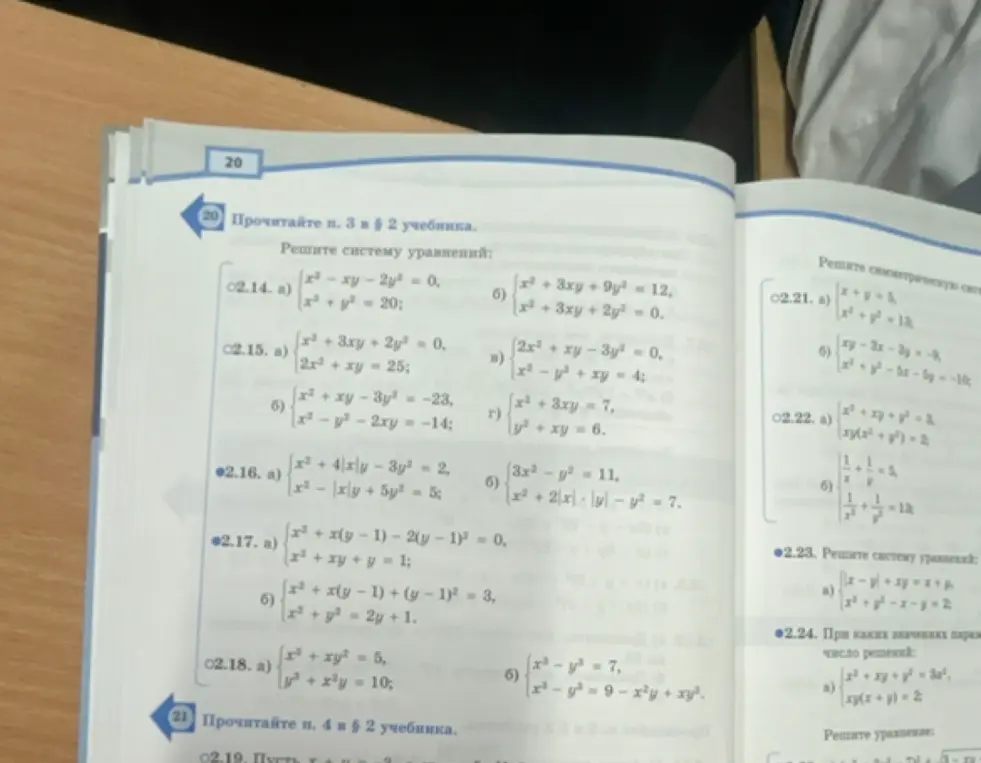 20
20 Прочитайте п. 3 в § 2 учебника.
Решите систему уравнений:
○2.14. а) { x² − xy − 2y² = 0,
x² + y² = 20;
б) { x² + 3xy + 9y² = 12,
x² + 3xy + 2y² = 0.
○2.15. а) { x² + 3xy + 2y² = 0,
2x² + xy = 25;
в) { 2x² + xy − 3y² = 0,
x² − y² + xy = 4;
б) { x² + xy − 3y² = −23,
x² − y² − 2xy = −14;
г) { x² + 3xy = 7,
y² + xy = 6.
●2.16. а) { x² + 4|x|y − 3y² = 2,
x² − |x|y + 5y² = 5;
б) { 3x² − y² = 11,
x² + 2|x| · |y| − y² = 7.
●2.17. а) { x² + x(y − 1) − 2(y − 1)² = 0,
x² + xy + y = 1;
б) { x² + x(y − 1) + (y − 1)² = 3,
x² + y² = 2y + 1.
○2.18. а) { x³ + xy² = 5,
y³ + x²y = 10;
б) { x³ − y³ = 7,
x³ − y³ = 9 − x²y + xy².
21 Прочитайте п. 4 в § 2 учебника.
○2.19. Пусть x + y = −2,
Решите симметрическую
○2.21. а) { x + y = 5,
x² + y² = 13;
б) { xy − 3x − 3y = −9,
x² + y² − 5x − 5y = −10;
○2.22. а) { x² + xy + y² = 3,
xy(x² + y²) = 2;
б) { 1/x + 1/y = 5,
1/x² + 1/y² = 13;
●2.23. Решите систему уравнений:
а) { |x − y| + xy = x + y,
x² + y² − x − y = 2;
●2.24. При каких значениях
число решений:
а) { x² + xy + y² = 3a²,
xy(x + y) = 2;
Решите уравнение: